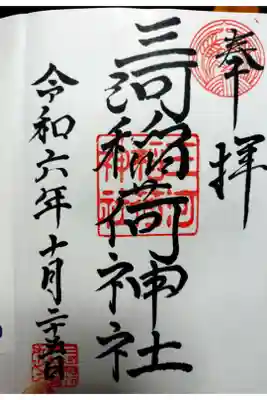 奉拝
三河稲荷神社
令和六年十月二十五日